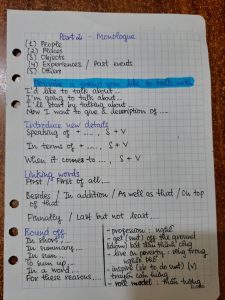 Part 2 - Monologue
(1) People
(2) Places
(3) Objects
(4) Experiences / Past events
(5) Others
Describe a friend you like to talk with
I'd like to talk about...
I'm going to talk about...
I'll start by talking about
Now I want to give a description of....
Introduce new details
Speaking of + ...., S + V
In terms of + ...., S + V
When it comes to ...., S + V
Linking words
First / First of all....
Besides / In addition / As well as that / On top
of that
Finally / Last but not least....
Round off
In short,...
In summary...
In sum
To sum up...
In a word...
For these reasons....
- profession : nghề
- get (sth) off the ground
(idiom) bắt đầu thành công
- live in poverty : sống trong
- inspire (sb to do sth) (v)
truyền cảm hứng
- role model : thần tượng